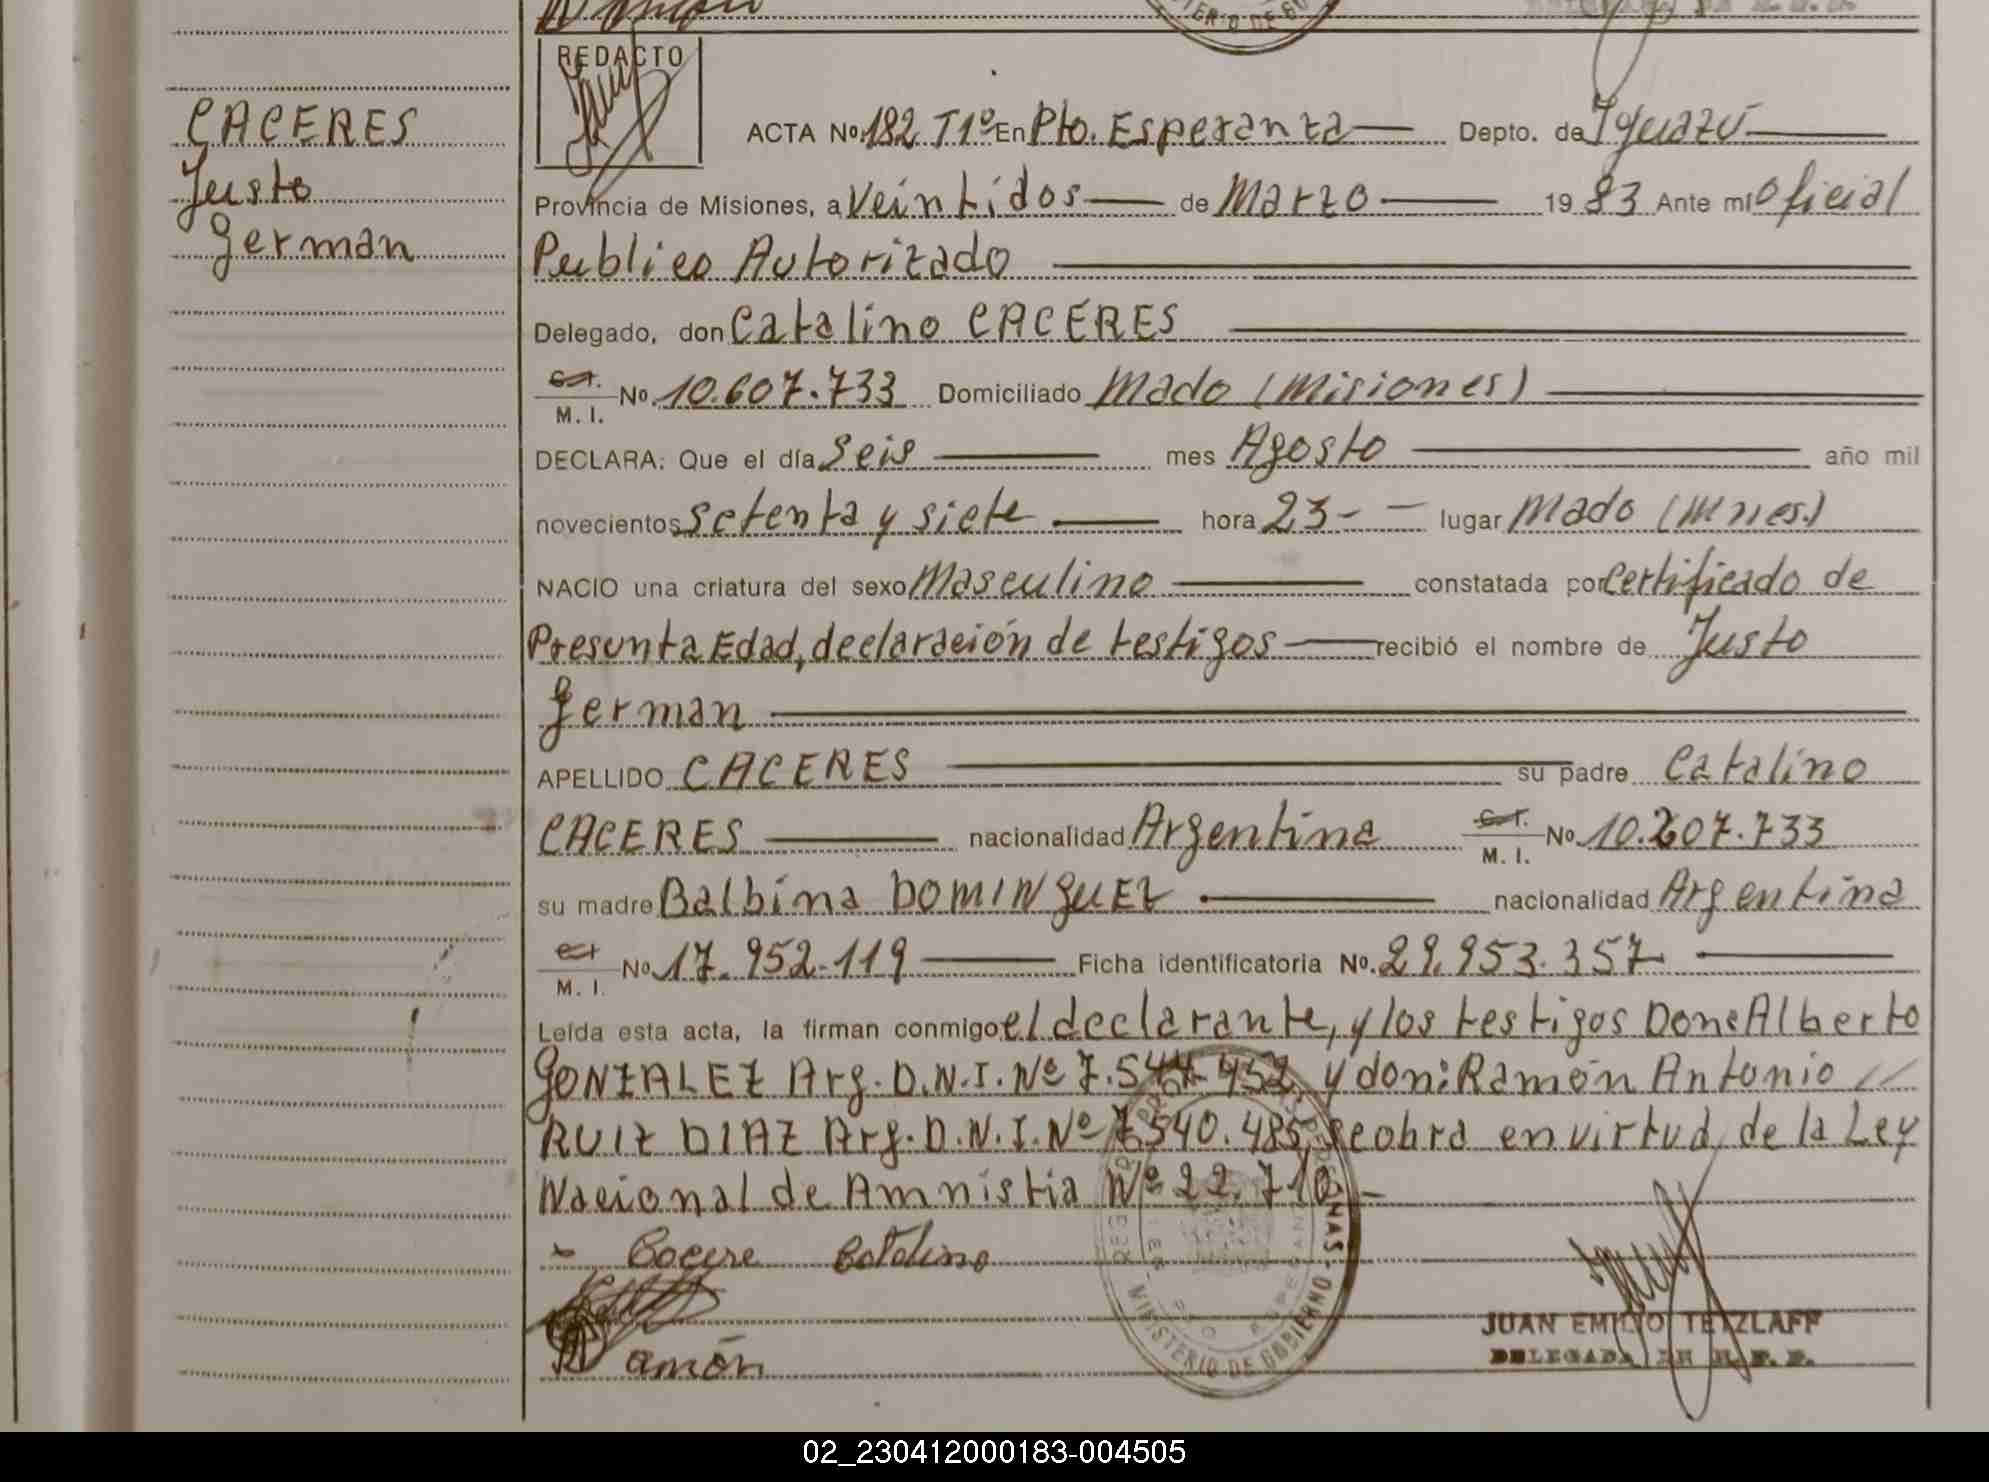 CACERES
Justo
German
REDACTO
ACTA No. 182 T1º En Pto. Esperanza Depto. de Iguazú
Provincia de Misiones, a Veintidos de Marzo 19 83 Ante mí Oficial
Publico Autorizado
Delegado, don Catalino CACERES
C.I. M. I. No. 10.607.733 Domiciliado Mado (Misiones)
DECLARA: Que el día Seis mes Agosto año mil
novecientos setenta y siete hora 23- - lugar Mado (Mnes.)
NACIO una criatura del sexo Masculino constatada por Certificado de
Presunta Edad, declaración de testigos recibió el nombre de Justo
German
APELLIDO CACERES su padre Catalino
CACERES nacionalidad Argentina C.I. M. I. No. 10.207.733
su madre Balbina DOMINGUEZ nacionalidad Argentina
M. I. No. 17.952.119 Ficha identificatoria No. 29.953.357
Leída esta acta, la firman conmigo el declarante, y los testigos Don: Alberto
GONZALEZ Arg. D.N.I. Nº 7.544.452, y don: Ramón Antonio //
RUIZ DIAZ Arg. D.N.I. Nº 7.540.485, se obra en virtud de la Ley
Nacional de Amnistia Nº 22.710.-
Cocere Catalino
Ramón
MINISTERIO DE GOBIERNO
JUAN EMILIO TETZLAFF
02_230412000183-004505